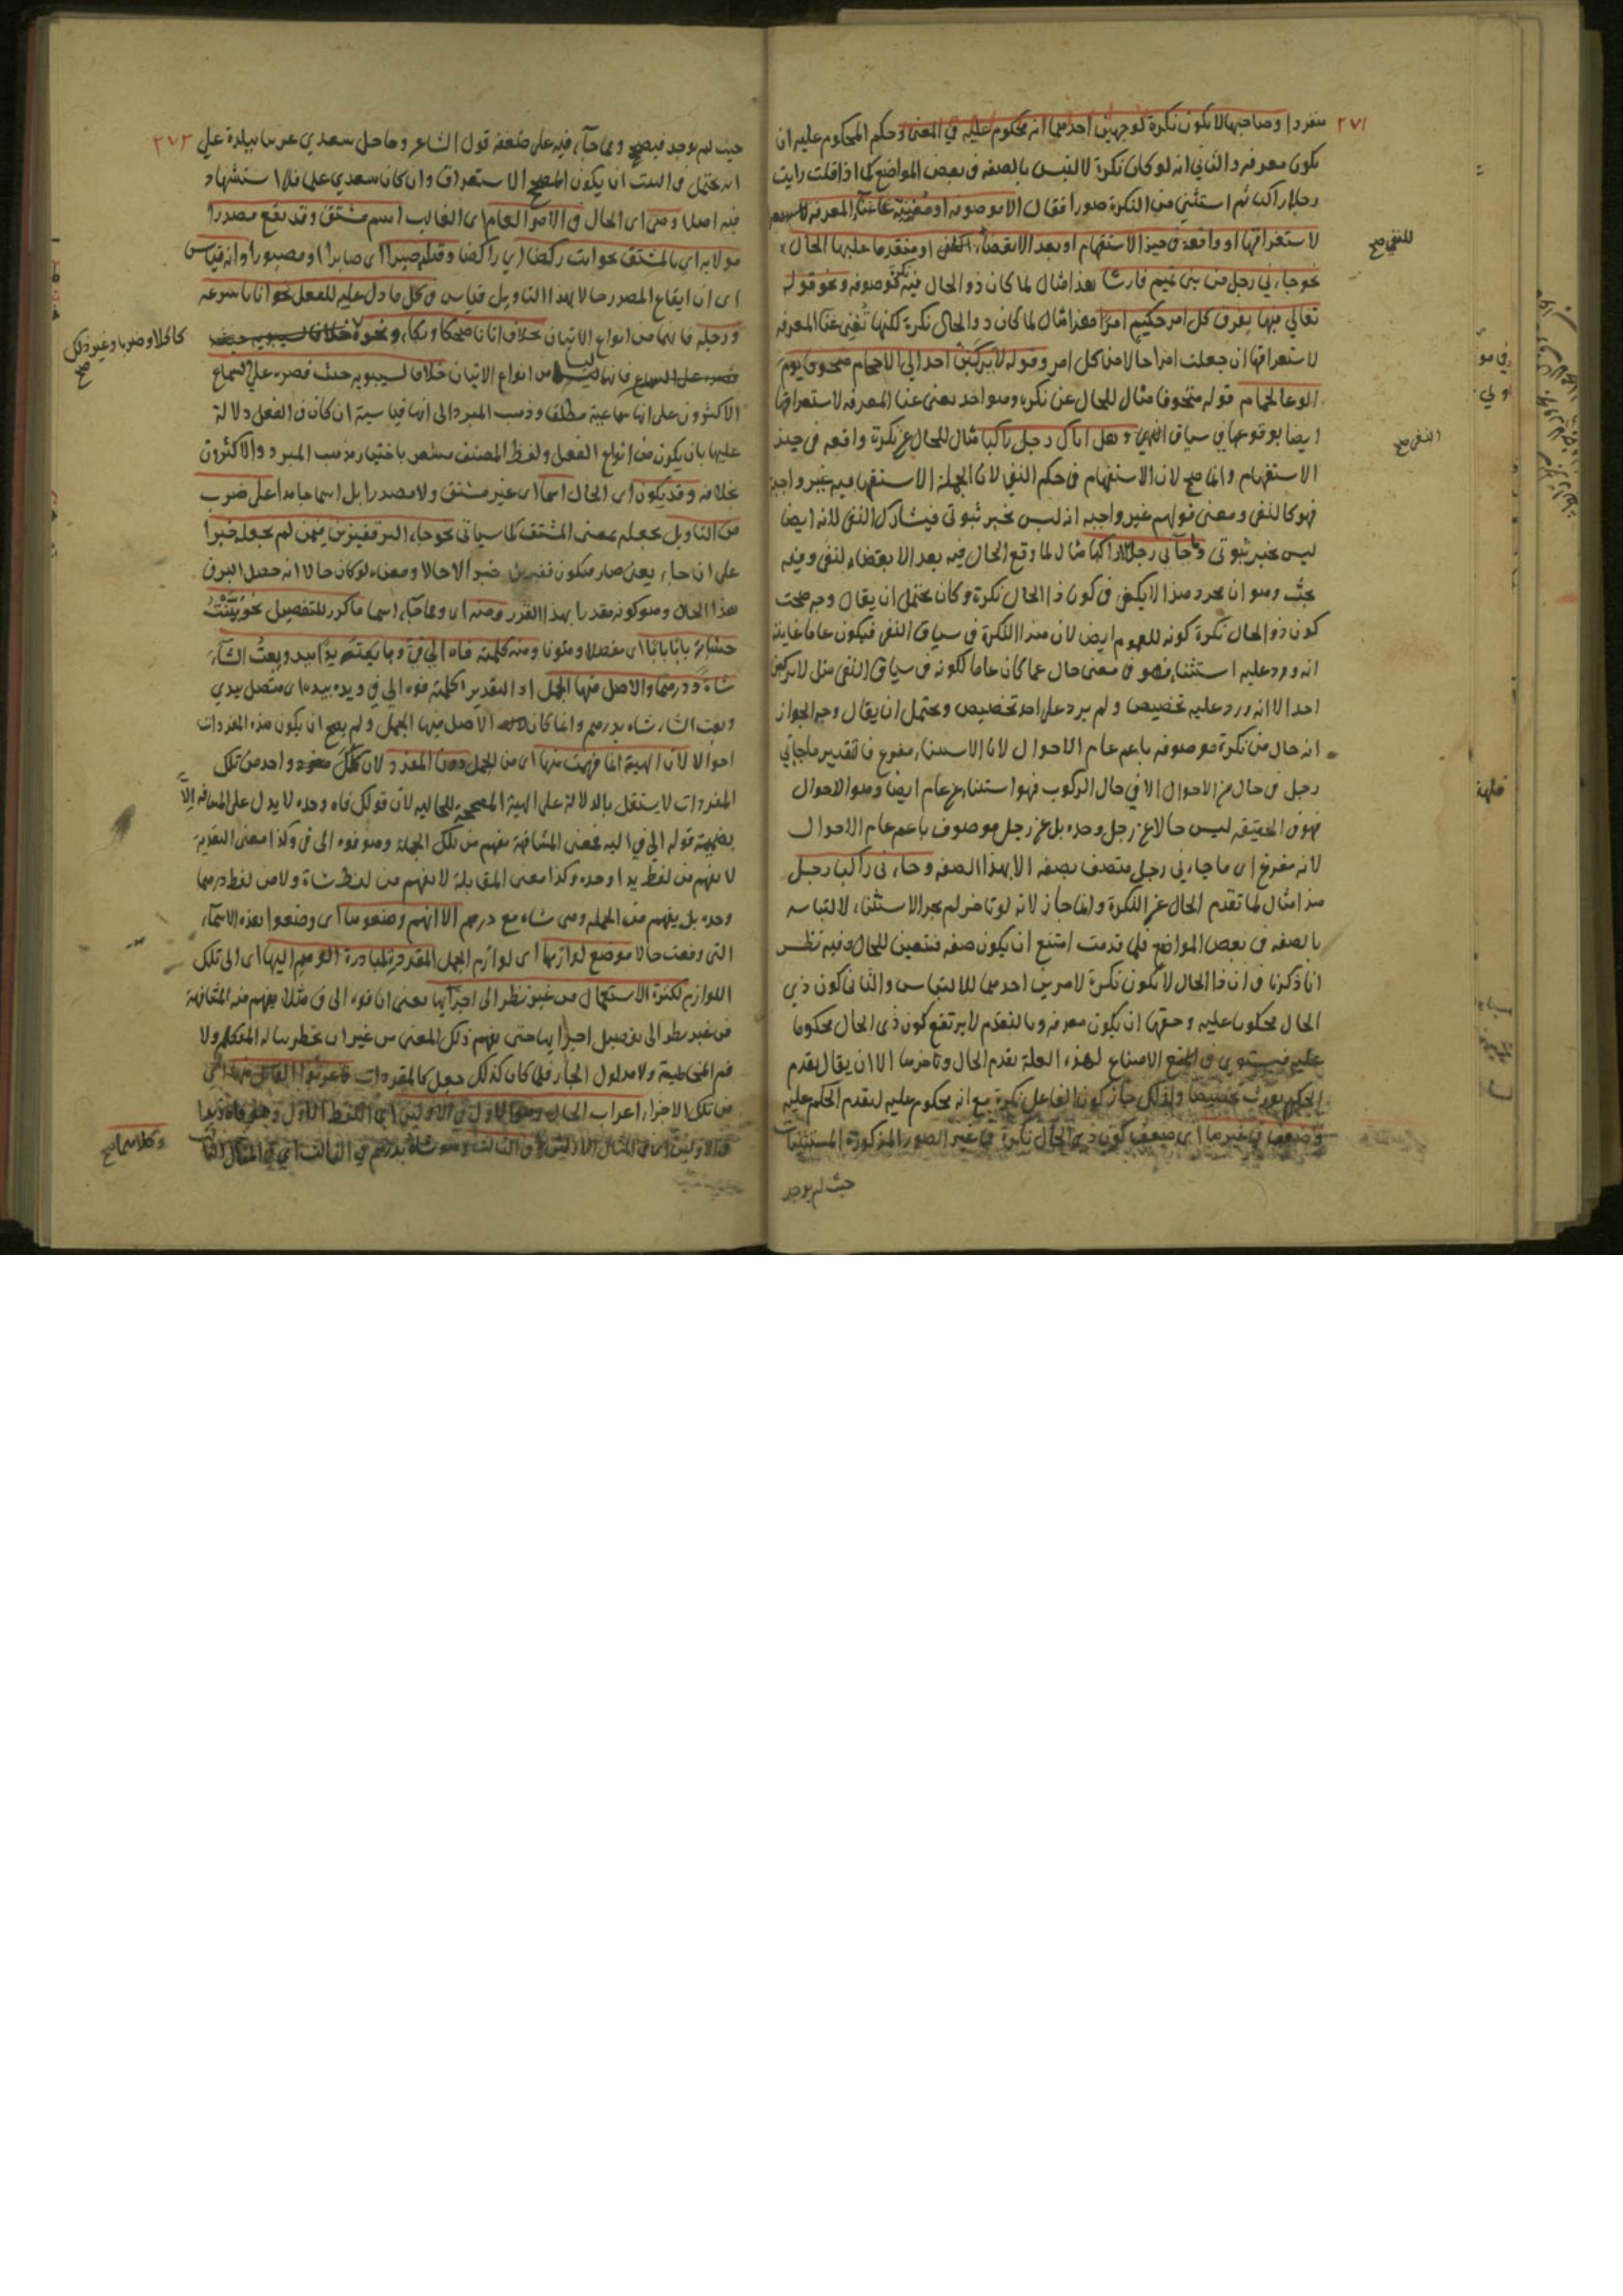 ٢٧١
منفردا وصاحبها لا يكون نكرة لوجهين احدهما انه محكوم عليه في المعنى وحكم المحكوم عليه ان
يكون معرفه والثاني انه لو كان نكرة لالتبس بالصفه في بعض المواضع كما اذا قلت رايت
رجلا راكبا ثم استثني من النكرة صورا فقال الا موصوفه او مغنيه غناء المعرفه
لاستغراقها او واقعة في حيز الاستفهام او بعد الا نقضا للنفى او متقدما عليها الحال
نحو جاءني رجل من بني تميم فارسا هذا مثال لما كان ذو الحال فيه نكرة موصوفه ونحو قوله
تعالى فيها يفرق كل امر حكيم امرا هذا مثال لما كان ذو الحال نكرة لكنها تغني غنا المعرفه
لاستغراقها ان جعلت امرا حالا من كل امر وقوله لا يركنن احد الى الاحجام متخوفا يوم
الوغا لحمام قوله متخوفا مثال للحال عن نكره وهو احد يغني غنا المعرفه لاستغراقها
ايضا بوقوعها في سياق النهي وهل اتاك رجل راكبا مثال للحال عن نكرة واقعه في حيز
الاستفهام وانما صح لان الاستفهام في حكم النفي لان الجملة الاستفهاميه غير واجبة
فهو كالنفى ومعنى قولهم غير واجبه انه ليس بخبر ثبوتي فيشارك النفى لانه ايضا
ليس بخبر ثبوتى وما جآني رجل الا راكبا مثال لما وقع الحال فيه بعد الا نقضا للنفى وفيه
بحث وهو ان مجرد هذا لا يكفى في كون ذا الحال نكرة وكان يحتمل ان يقال وجه صحت
كون ذو الحال نكرة كونه للعموم ايض لان هذا النكرة في سياق النفى فيكون عاما غايته
انه ورد عليه استثناء فهو في معنى حال عما كان عاما لكونه في سياق النفى مثل لا يركنن
احد الا انه ورد عليه تخصيص ولم يرد على احد تخصيص ويحتمل ان يقال وجه الجواز
انه حال من نكرة موصوفه باعم عام الاحوال لان الاستثنا مفرغ فالتقدير ما جاني
رجل في حال من الاحوال الا في حال الركوب فهو استثنا من عام ايضا وهو الاحوال
فهو في الحقيقه ليس حالا عن رجل وحده بل عن رجل موصوف باعم عام الاحوال
لانه مفرغ اى ما جاءني رجل متصف بصفه الا بهذا الصفه وجاءنى راكبا رجل
هذا مثال لما تقدم الحال عن النكرة وانما جاز لانه لو تاخر لم يجز الاستثناء لالتباسه
بالصفه في بعض المواضع فلما قدمت امتنع ان يكون صفه فتعين للحال وفيه نظر
انا ذكرنا في ان ذا الحال لا يكون نكرة لامرين احدهما للالتباس والثاني كون ذي
الحال محكوما عليه وحقها ان يكون معرفه وبالتقدم لا يرتفع كون ذى الحال محكوما
عليه فيستوي في المنع الامتناع لهذه العلة تقدم الحال وتاخرها الا ان يقال تقدم
الحكم يورث تخصيصا ولذلك جاز كون الفاعل نكرة مع انه محكوم عليه لتقدم الحكم عليه
وضعف في غيرها اى ضعف كون ذي الحال نكرة في غير الصور المذكورة المستثنيات
حيث لم يوجد
للنفى صح
النفى صح
٢٧٢
حيث لم يوجد فيصح ومما جآء فيه على ضعفه قول الشاعر وما حل سعدي غريبا ببلدة على
انه يحتمل في البيت ان يكون المصحح الاستغراق وان كان سعدي على فلا استشهاد
فيه اصلا وهى اى الحال في الامر العام اى الغالب اسم مشتق وقد يقع مصدرا
مولا به اي بالمشتق نحو اتيت ركضا اي راكضا وقتلته صبرا اى صابرا او مصبورا وانه قياس
اى ان ايقاع المصدر حالا بهذا التاويل قياس في كل ما دل عليه الفعل نحو اتانا سرعه
ورجله فانهما من انواع الاتيان بخلاف اتانا ضحكا وبكاء ونحوه خلافا لسيبويه حيث
قصره على السماع فانها ليسا من انواع الاتيان خلافا لسيبويه حيث قصره على السماع
الاكثرون على انها سماعية مطلقا وذهب المبرد الى انها قياسية ان كان في الفعل دلالة
عليها بان يكون من انواع الفعل ولفظ المصنف مشعر باختيار مذهب المبرد والاكثرون
بخلافه وقد يكون اى الحال اسما اى غير مشتق ولا مصدرا بل اسما جامدا على ضرب
من التاويل بجعله بمعنى المشتق كما سياتى نحو جاء البر قفيزين فيمن لم يجعله خبرا
على ان جاء يعنى صار فيكون قفيزين خبرا لا حالا ومعناه لو كان حالا انه حصل البر في
هذا الحال وهو كونه مقدرا بهذا القدر ومنه اى ومما جآء اسما ما كرر للتفصيل نحو بينت
حسابه بابا بابا اى مفصلا ومنه كلمته فاه الي في وبايعته يدا بيد وبعت الشآء
شاة ودرهما والاصل فيها الجمل اذ التقدير كلمته فوه الي في ويده بيده اى متصل بيدي
وبعت الشاء شاه بدرهم وانما كان الاصل فيها الجمل ولم يصح ان يكون هذه المفردات
احوالا لان الهيئة انما فهمت منها اى من الجمل دون المفرد لان كل واحد من تلك
المفردات لا يستقل بالدلالة على الهيئة المصححه للحاليه لان قولك فاه وحده لا يدل على المشافهه الا
بضميمة قوله الي في اليه فمعنى المشافهة مفهم من تلك الجملة وهو فوه الى في وكذا معنى النقدية
لا يفهم من لفظ يدا وحده وكذا معنى المقابلة لا يفهم من لفظ شاة ولا من لفظ درهما
وحده بل يفهم من الجمله وهى شاه مع درهم الا انهم وضعوها اى وضعوا هذه الاسماء
التى وقعت حالا موضع لوازمها اى لوازم الجمل المقدرة لمبادرة الفهم اليها اى الى تلك
اللوازم لكثرة الاستعمال من غير نظر الى اجزآئها يعنى ان فوه الى في مثلا يفهم منه المشافهة
من غير نظر الى تفصيل اجزايها حتى يفهم ذلك المعنى من غير ان يخطر بباله المتكلم ولا
فم المخاطبة ولا مدلول الجار فلما كان كذلك جعل كالمفردات فاعربوا القابل منها اي
من تلك الاجزاء اعراب الحال وهو الاول في الاوليين اى اللفظ الاول وهو فاه ويدا
في الاوليين اى في المثال الاوليين وفي الثالث وهو شاة بدرهم في الثالث اي في المثال الثالث
كاكلا وضربا وغير ذلك صح
وكلاهما صح